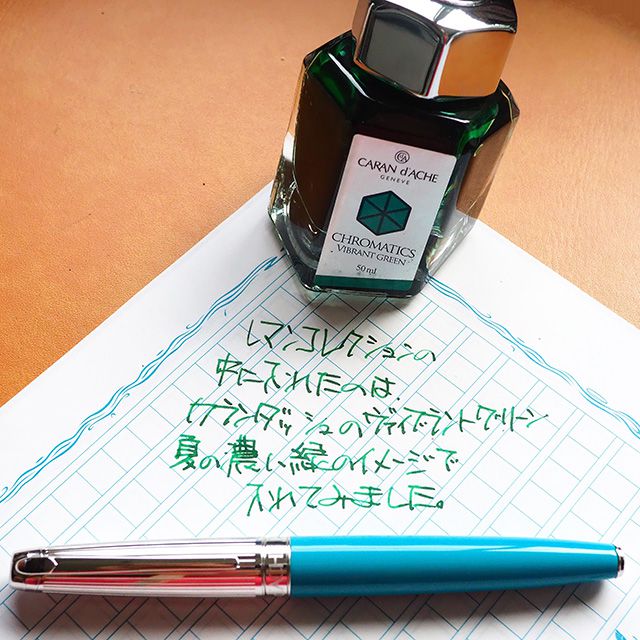 CARAN d'ACHE
GENEVE
CHROMATICS
VIBRANT GREEN
50 ml
レマンコレクションの
中に入れたのは、
カランダッシュのヴァイブラントグリーン
夏の濃い緑のイメージで
入れてみました。